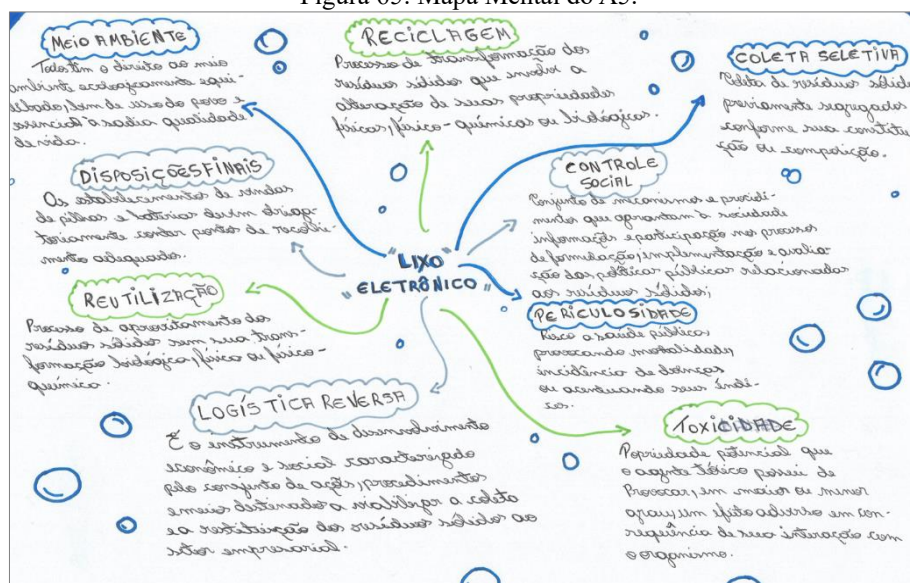 Figura 65: Mapa Mental do A5.
MEIO AMBIENTE
Todos têm o direito ao meio
ambiente ecologicamente equi-
librado, bem de uso do povo e
essencial a sadia qualidade
de vida.
RECICLAGEM
Processo de transformação dos
resíduos sólidos que envolve a
alteração de suas propriedades
físicas, físico-químicas ou biológicas.
COLETA SELETIVA
Coleta de resíduos sólid
previamente segregados
conforme sua constitui
ção ou composição.
DISPOSIÇÕES FINAIS
Os estabelecimentos de vendas
de pilhas e baterias devem obriga-
toriamente conter pontos de recolhi-
mento adequados.
CONTROLE
SOCIAL
Conjunto de mecanismos e procedi-
mentos que garantam à sociedade
informações e participação nos processos
de formulação, implementação e avalia-
ção das políticas públicas relacionadas
aos resíduos sólidos;
"LIXO
"ELETRÔNICO"
REUTILIZAÇÃO
Processo de aproveitamento dos
resíduos sólidos sem sua trans-
formação biológica, física ou físico-
química.
PERICULOSIDADE
Risco a saúde pública,
provocando mortalidade,
incidência de doenças
ou acentuando seus índi-
ces.
LOGÍSTICA REVERSA
É o instrumento de desenvolvimento
econômico e social caracterizado
pelo conjunto de ações, procedimentos
e meios destinados a viabilizar a coleta
e a restituição dos resíduos sólidos ao
setor empresarial.
TOXICIDADE
Popriedade potencial que
o agente tóxico possui de
Provocar, em maior ou menor
grau, um efeito adverso em con-
sequência de sua interação com
o organismo.